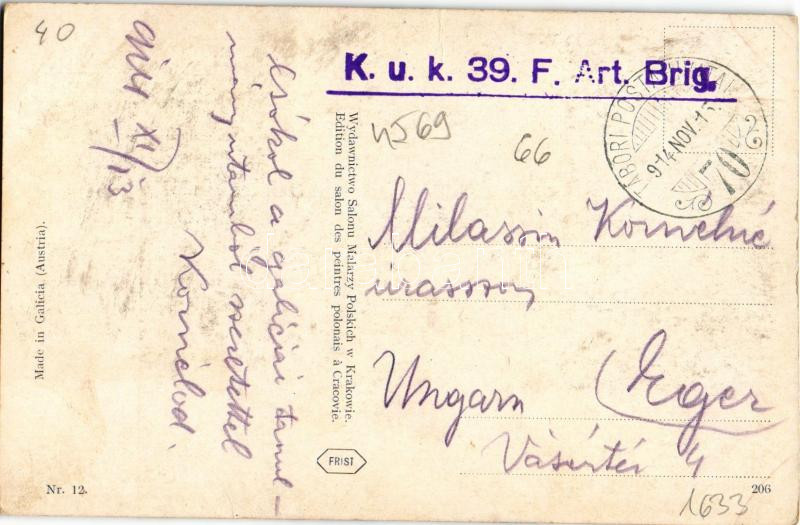 40
K. u. k. 39. F. Art. Brig.
TÁBORI POSTAHIVATAL
914 NOV. 15
70
4569
66
914 XI/13
Csókol a galíciai tanul-
mány utamból szeretettel
Kornélod.
Wydawnictwo Salonu Malarzy Polskich w Krakowie.
Edition du salon des peintres polonais à Cracovie.
Made in Galicia (Austria).
Milassin Kornélné
úrasszony
Ungarn Eger
Vásártér 4
FRIST
Nr. 12.
206
1633